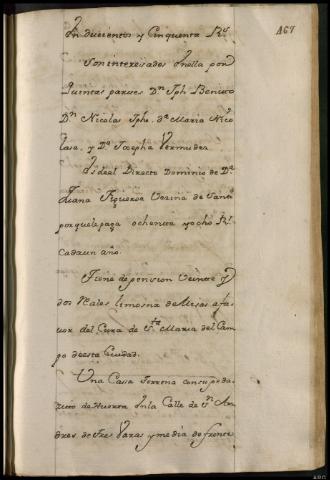 467
En Duecientos y Cinquenta R.s
Son interesados Enella por
Quintas partes Dn Jph Benito
Dn Nicolas Jphe, Da Maria Nico
lasa, y Da Josepha Vermudez
Es del Directo Dominio de Da
Juana Figueroa Vecina de Santo
por que le paga ochenta y ocho R.s
Cada un año.
Tiene de pension Veinte y
dos Reales limosna de Misas a fa
uor del Cura de Sta Maria del Cam
po de esta Ciudad.
Una Casa Terrena con su peda
zito de Huerta En la Calle de Sn An
dres de Tres Varas y media de frente